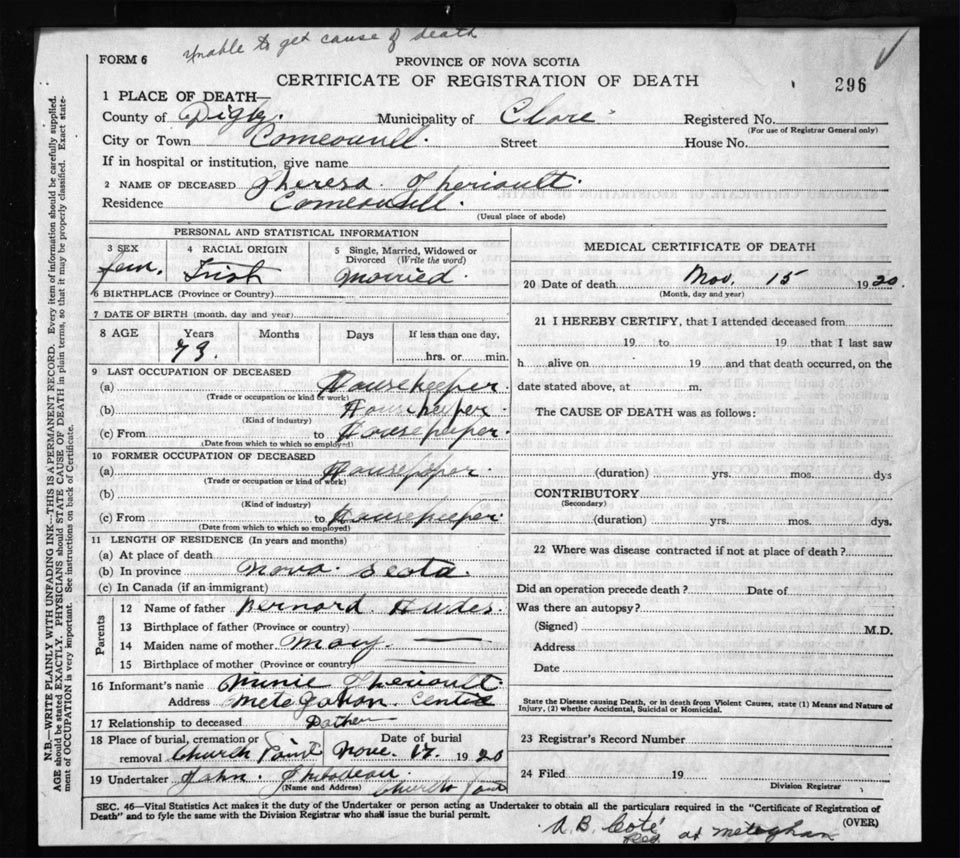 Unable to get cause of death
FORM 6
PROVINCE OF NOVA SCOTIA
CERTIFICATE OF REGISTRATION OF DEATH
296
1 PLACE OF DEATH—
County of Digby. Municipality of Clare Registered No.
(For use of Registrar General only)
City or Town Comeouvill. Street House No.
If in hospital or institution, give name
2 NAME OF DECEASED Theresa. Theriault.
Residence Comeouvill.
(Usual place of abode)
PERSONAL AND STATISTICAL INFORMATION
3 SEX 4 RACIAL ORIGIN 5 Single, Married, Widowed or Divorced (Write the word)
fem. Irish Married.
6 BIRTHPLACE (Province or Country)
7 DATE OF BIRTH (month, day and year)
8 AGE Years Months Days If less than one day,
73. hrs. or min.
9 LAST OCCUPATION OF DECEASED
(a) Housekeeper.
(Trade or occupation or kind of work)
(b) Housekeeper.
(Kind of industry)
(c) From to Housekeeper.
(Date from which to which so employed)
10 FORMER OCCUPATION OF DECEASED
(a) Housekeeper
(Trade or occupation or kind of work)
(b)
(Kind of industry)
(c) From to Housekeeper.
(Date from which to which so employed)
11 LENGTH OF RESIDENCE (In years and months)
(a) At place of death
(b) In province Nova. Scota.
(c) In Canada (if an immigrant)
Parents
12 Name of father Bernard.
13 Birthplace of father (Province or country)
14 Maiden name of mother Mary. —
15 Birthplace of mother (Province or country) —
16 Informant's name Minie Theriault.
Address Metegahan. Centre
17 Relationship to deceased
18 Place of burial, cremation or Date of burial
removal Church Point Nove. 17. 1920
19 Undertaker John. Thibodeau.
(Name and Address) Church Point
MEDICAL CERTIFICATE OF DEATH
20 Date of death Nov. 15 1920.
(Month, day and year)
21 I HEREBY CERTIFY, that I attended deceased from
19 to 19 that I last saw
h alive on 19 and that death occurred, on the
date stated above, at m.
The CAUSE OF DEATH was as follows:
(duration) yrs. mos. dys
CONTRIBUTORY
(Secondary)
(duration) yrs. mos. dys.
22 Where was disease contracted if not at place of death?
Did an operation precede death? Date of
Was there an autopsy?
(Signed) M.D.
Address
Date
State the Disease causing Death, or in death from Violent Causes, state (1) Means and Nature of
Injury, (2) whether Accidental, Suicidal or Homicidal.
23 Registrar's Record Number
24 Filed 19
Division Registrar
SEC. 46—Vital Statistics Act makes it the duty of the Undertaker or person acting as Undertaker to obtain all the particulars required in the "Certificate of Registration of
Death" and to fyle the same with the Division Registrar who shall issue the burial permit.
(OVER)
A. B. Coté
Reg at Meteghan
N.B.—WRITE PLAINLY WITH UNFADING INK—THIS IS A PERMANENT RECORD. Every item of information should be carefully supplied.
AGE should be stated EXACTLY. PHYSICIANS should STATE CAUSE OF DEATH in plain terms, so that it may be properly classified. Exact state-
ment of OCCUPATION is very important. See instructions on back of Certificate.